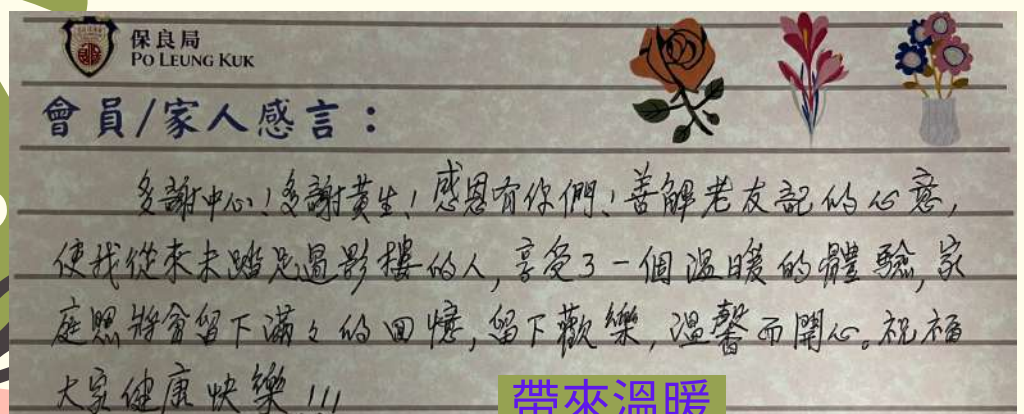 保良局
PO LEUNG KUK
會員/家人感言：
多謝中心！多謝黃生！感恩有你們！善解老友記的心意，
使我從來未踏足過影樓的人，享受了一個溫暖的體驗，家
庭照將會留下滿々的回憶，留下歡樂，溫馨而開心。祝福
大家健康快樂！！！
帶來溫暖